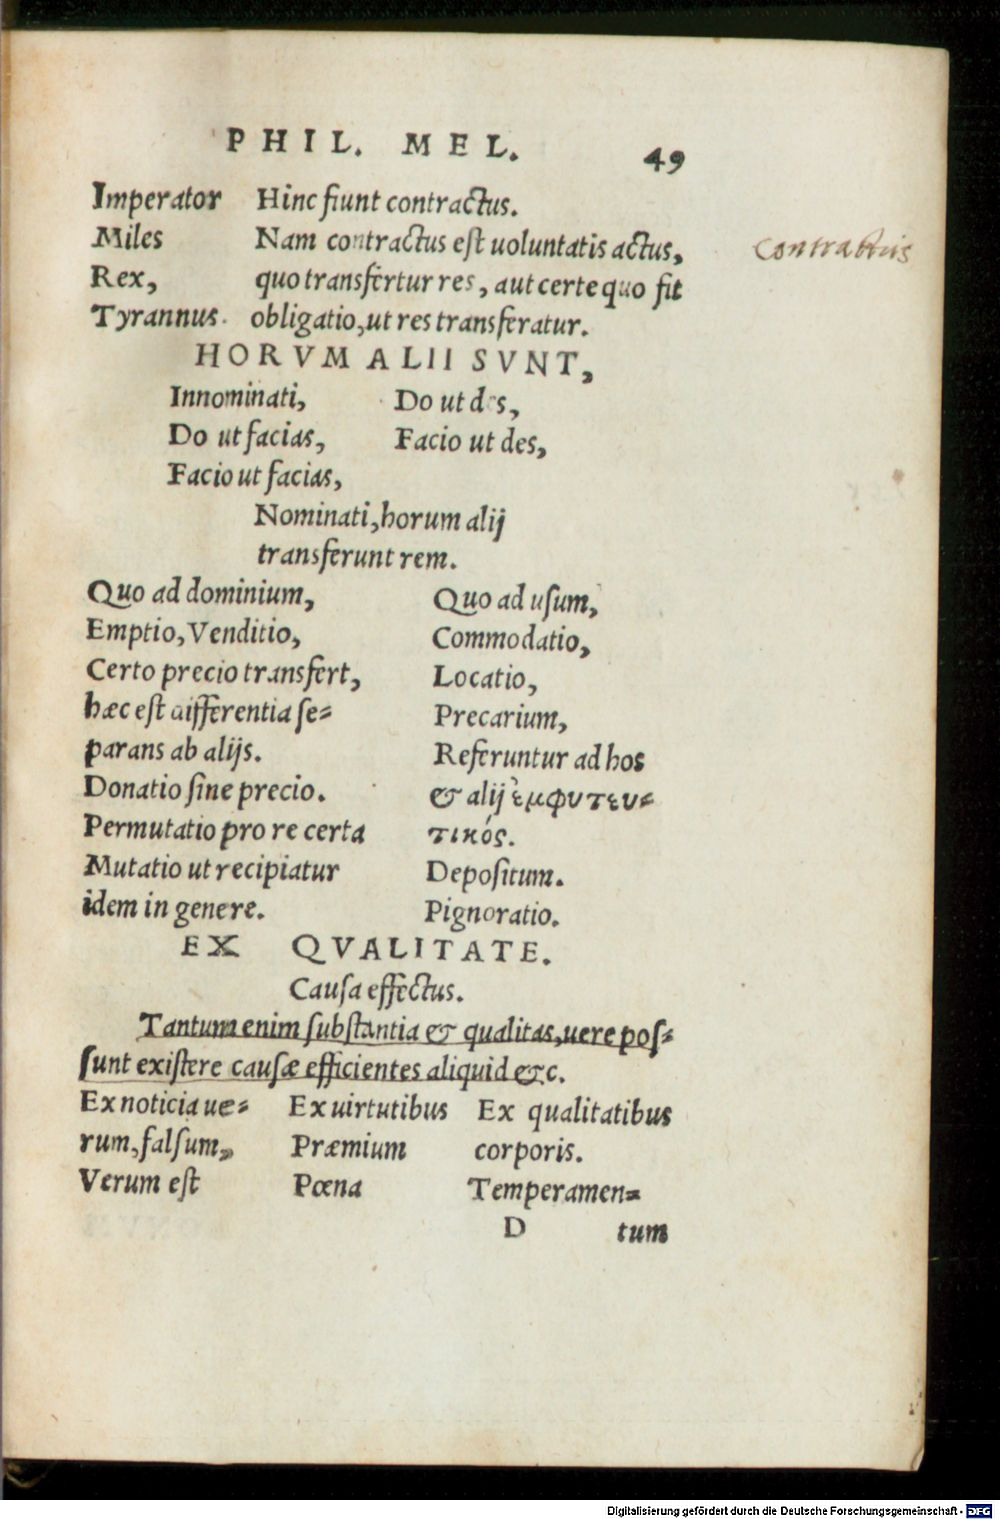 PHIL. MEL. 49
Imperator Hinc fiunt contractus.
Miles Nam contractus est uoluntatis actus,
Rex, quo transfertur res, aut certe quo fit
Tyrannus. obligatio, ut res transferatur.
Contractus
HORVM ALII SVNT,
Innominati, Do ut des,
Do ut facias, Facio ut des,
Facio ut facias,
Nominati, horum alij
transferunt rem.
Quo ad dominium,
Emptio, Venditio,
Certo precio transfert,
hæc est differentia se-
parans ab alijs.
Donatio sine precio.
Permutatio pro re certa
Mutatio ut recipiatur
idem in genere.
Quo ad usum,
Commodatio,
Locatio,
Precarium,
Referuntur ad hos
& alij ἐμφυτευ-
τικός.
Depositum.
Pignoratio.
EX QVALITATE.
Causa effectus.
Tantum enim substantia & qualitas, uere pos-
sunt existere causæ efficientes aliquid &c.
Ex noticia ue-
rum, falsum,
Verum est
Ex uirtutibus
Præmium
Pœna
Ex qualitatibus
corporis.
Temperamen-
D tum
Digitalisierung gefördert durch die Deutsche Forschungsgemeinschaft - DFG